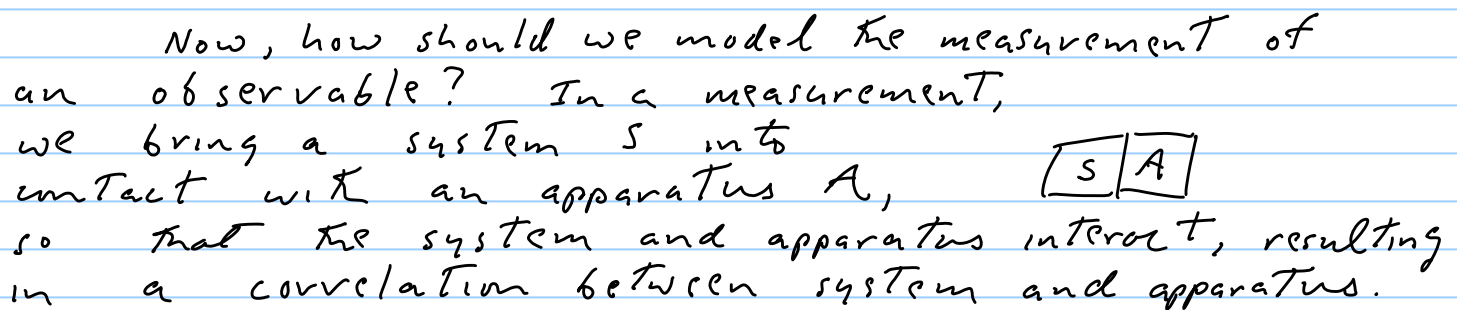 Now, how should we model the measurement of
an observable? In a measurement,
we bring a system S into
contact with an apparatus A,
S A
so that the system and apparatus interact, resulting
in a correlation between system and apparatus.